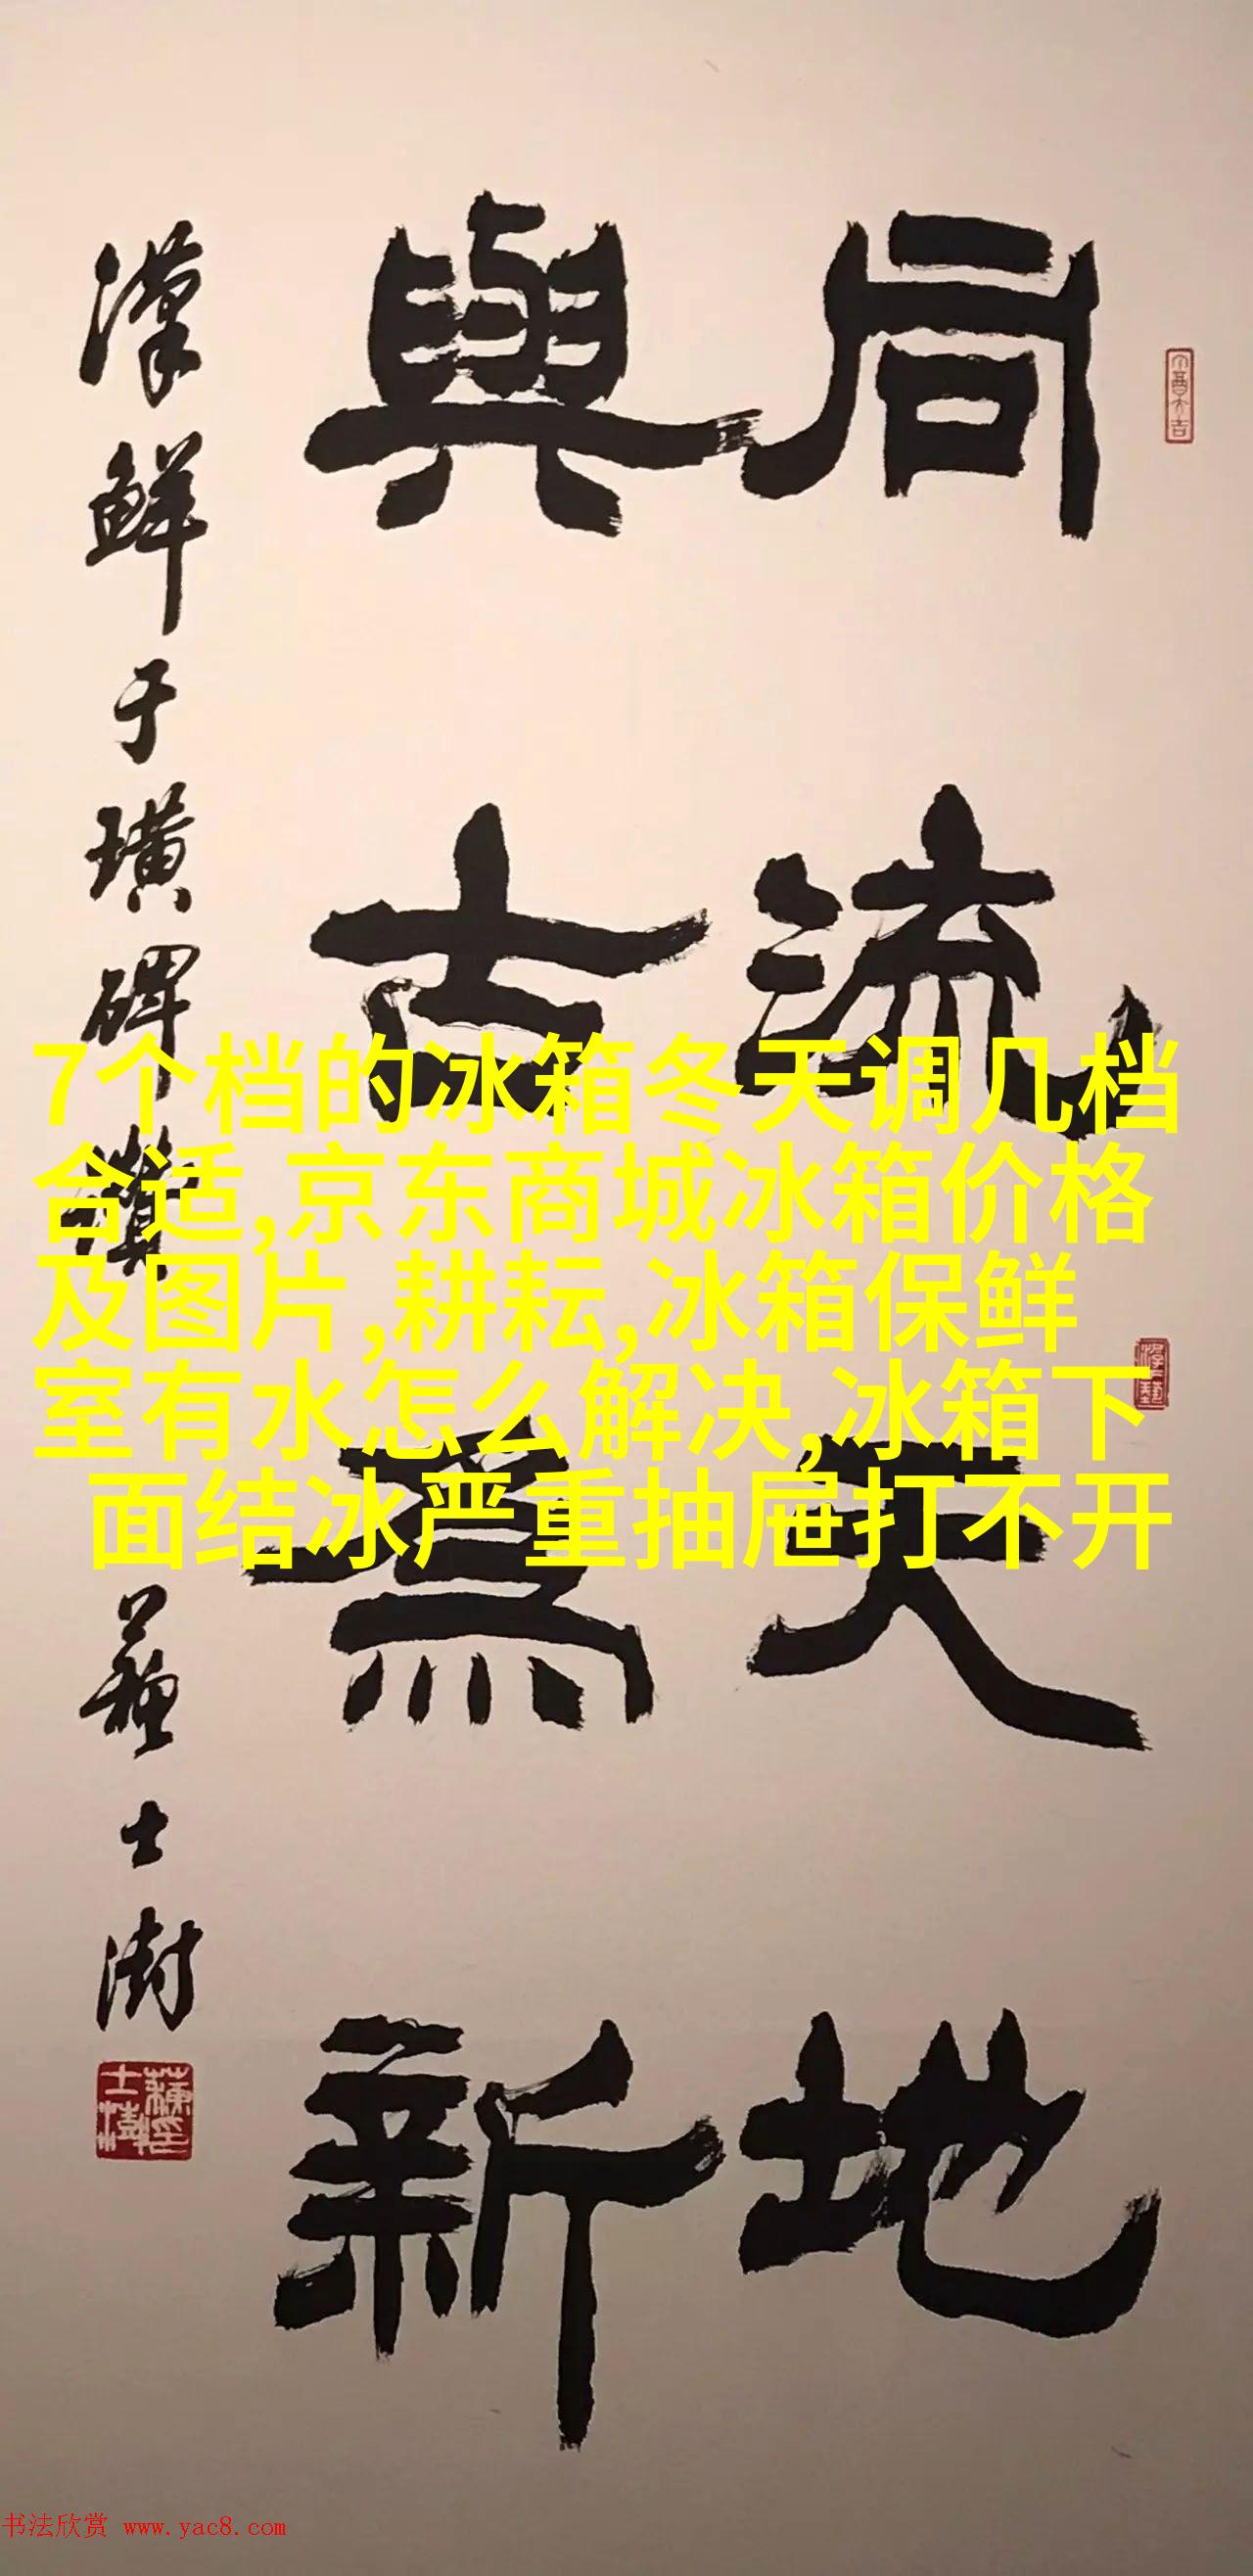 同流天地
與古爲新
漢鮮于璜碑讚
蘇士澍
7个档的冰箱冬天调几档
合适,京东商城冰箱价格
及图片,耕耘,冰箱保鲜
室有水怎么解决,冰箱下
面结冰严重抽屉打不开
书法欣赏 www.yac8.com